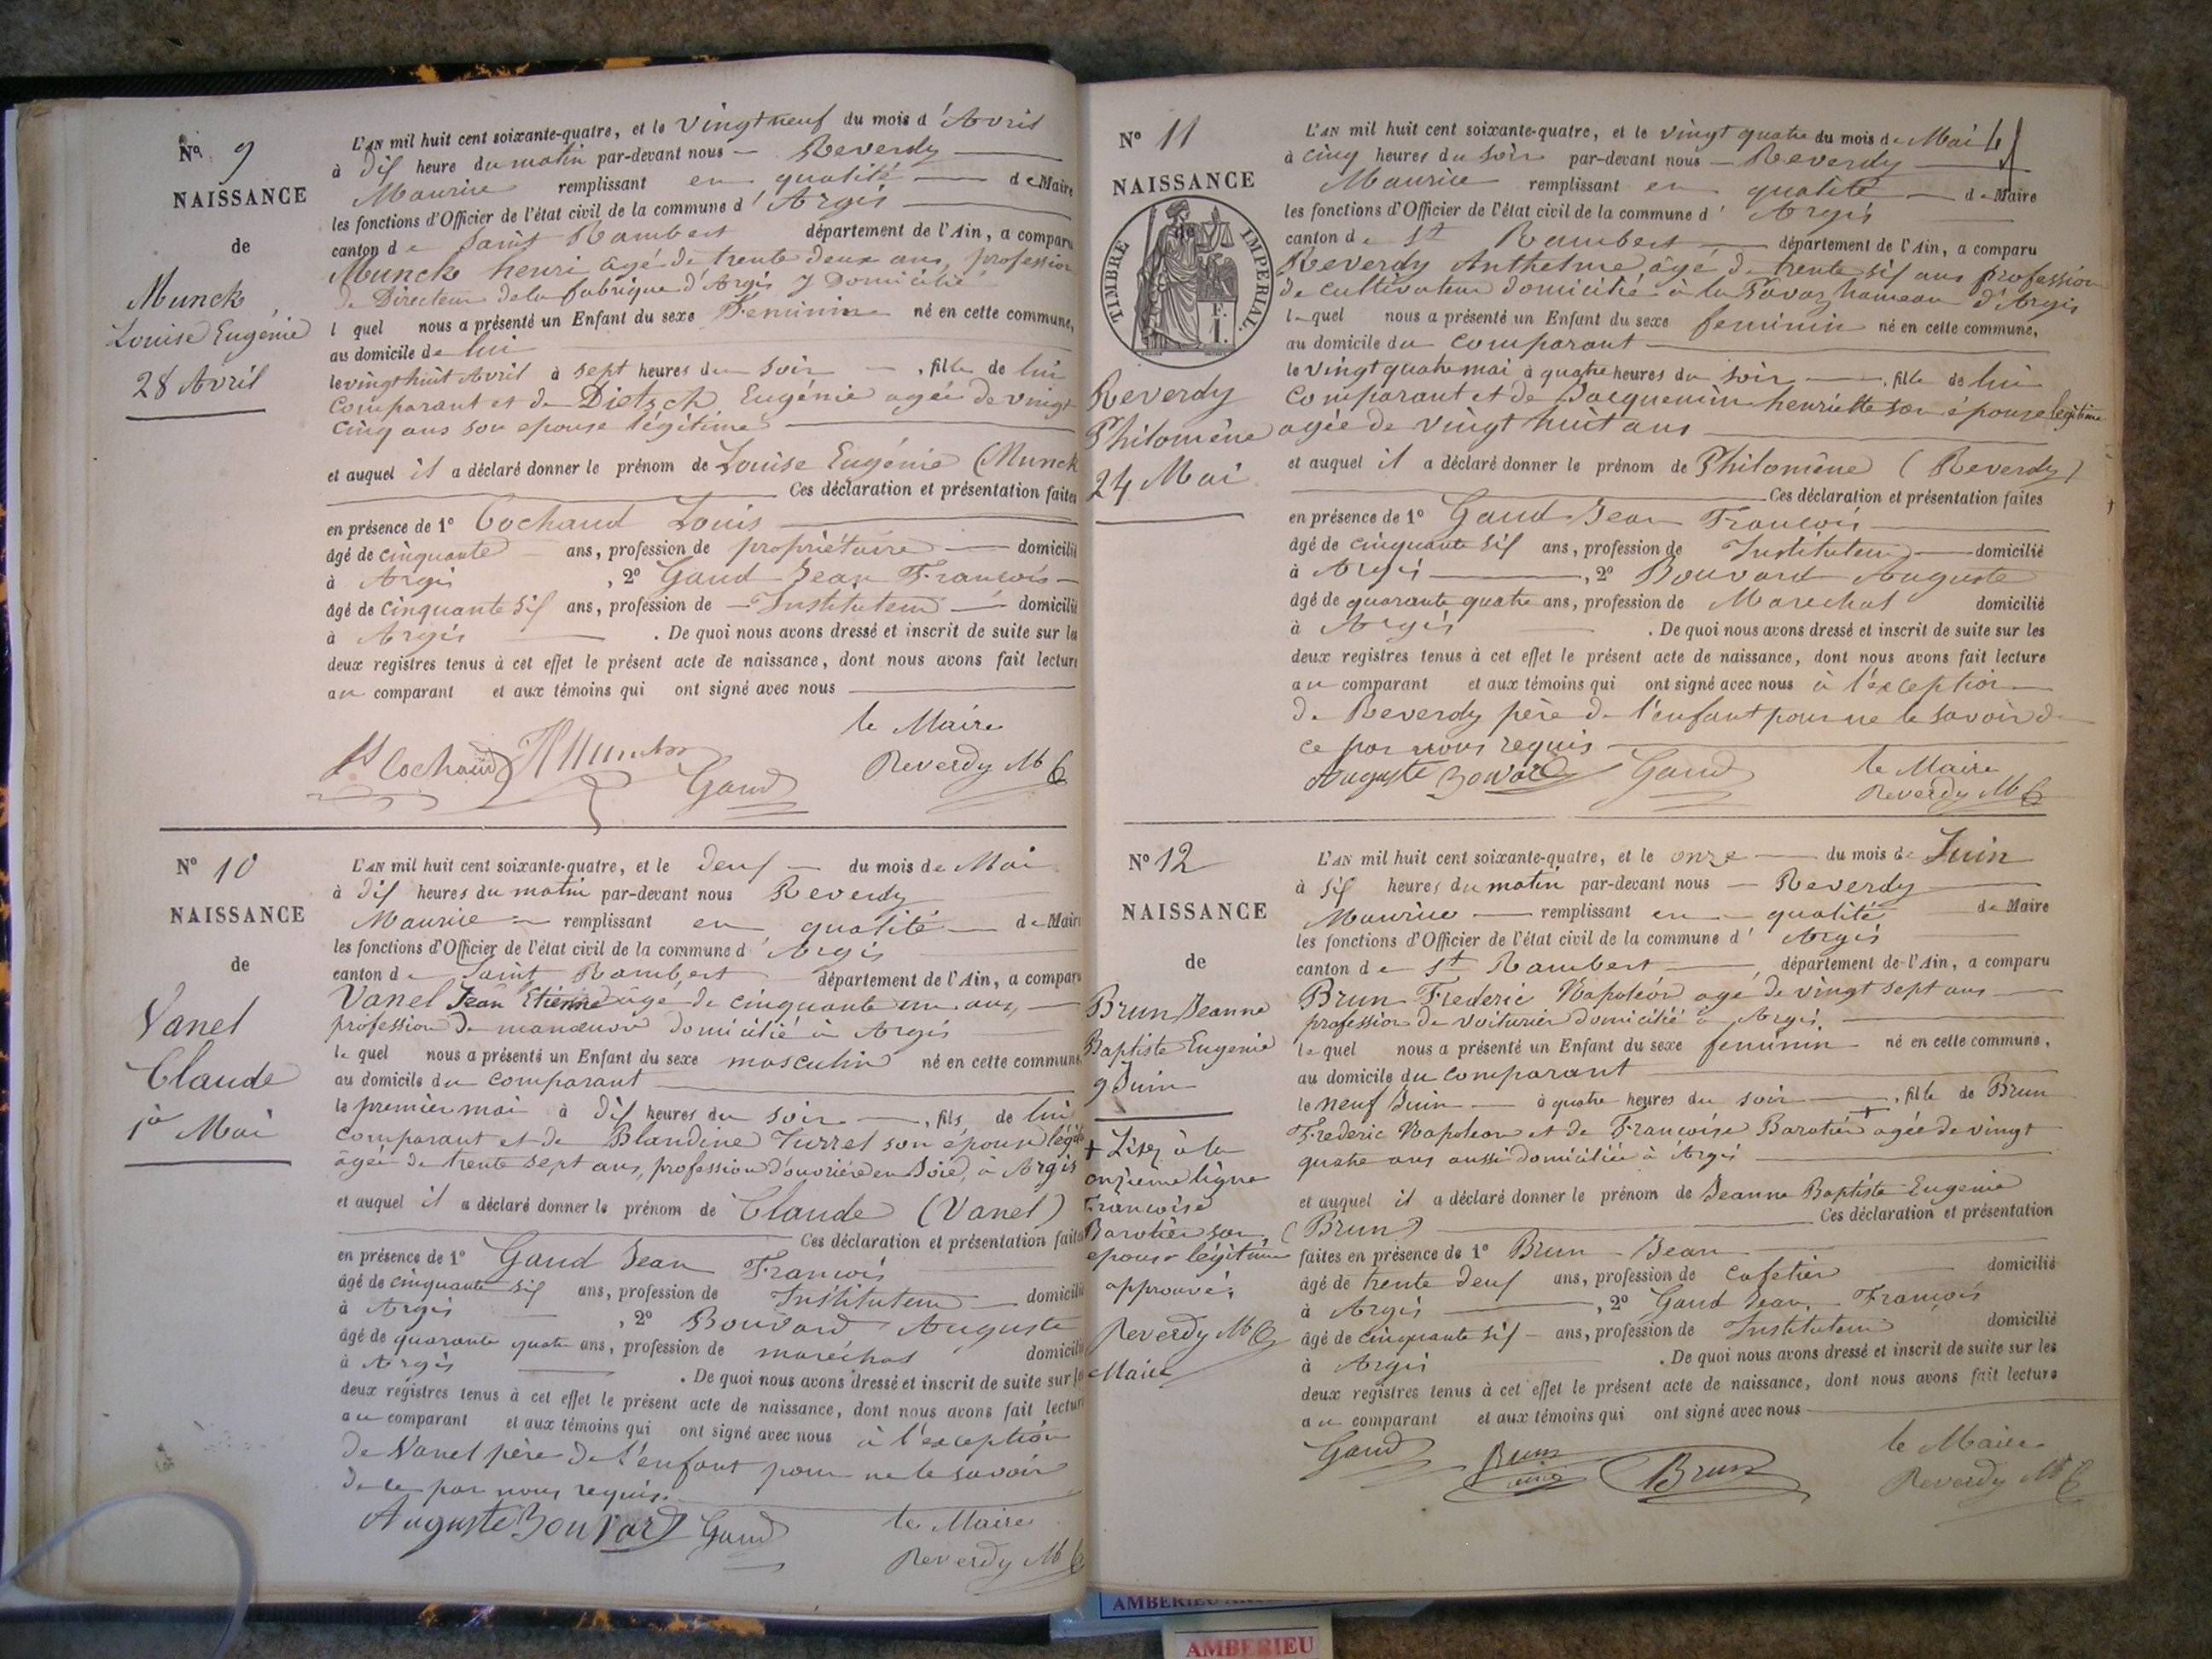 No 9
NAISSANCE
de
Munck
Louise Eugénie
28 Avril
L'AN mil huit cent soixante-quatre, et le vingt neuf du mois d'Avril
à dix heure du matin par-devant nous Reverdy
Maurice remplissant en qualité de Maire
les fonctions d'Officier de l'état civil de la commune d'Argis
canton de Saint Rambert département de l'Ain, a comparu
Munck henri âgé de trente deux ans, profession
de Directeur de la fabrique d'Argis y Domicilié
lequel nous a présenté un Enfant du sexe Feminin né en cette commune,
au domicile de lui
le vingt huit Avril à sept heures du soir, fille de lui
comparant et de Dietsch Eugénie agée de vingt
cinq ans son epouse légitime
et auquel il a déclaré donner le prénom de Louise Eugénie (Munck
Ces déclaration et présentation faites
en présence de 1º Cochaud Louis
âgé de cinquante ans, profession de propriétaire domicilié
à Argis, 2º Gaud Jean François
âgé de cinquante six ans, profession de Instituteur domicilié
à Argis. De quoi nous avons dressé et inscrit de suite sur les
deux registres tenus à cet effet le présent acte de naissance, dont nous avons fait lecture
au comparant et aux témoins qui ont signé avec nous
le Maire
Ls Cochaud H Munck Gaud Reverdy M
No 10
NAISSANCE
de
Vanel
Claude
1er Mai
L'AN mil huit cent soixante-quatre, et le deux du mois de Mai
à dix heures du matin par-devant nous Reverdy
Maurice remplissant en qualité de Maire
les fonctions d'Officier de l'état civil de la commune d'Argis
canton de Saint Rambert département de l'Ain, a comparu
Vanel Jean Etienne âgé de cinquante un ans,
profession de manœuvre domicilié à Argis
lequel nous a présenté un Enfant du sexe masculin né en cette commune
au domicile du comparant
le premier mai à dix heures du soir, fils de lui
comparant et de Blandine Jurret son épouse légit
âgée de trente sept ans, profession d'ouvrière en Soie, à Argis
et auquel il a déclaré donner le prénom de Claude (Vanel)
Ces déclaration et présentation faites
en présence de 1º Gaud Jean François
âgé de cinquante six ans, profession de Instituteur domicilié
à Argis, 2º Bouvard Auguste
âgé de quarante quatre ans, profession de maréchal domicilié
à Argis. De quoi nous avons dressé et inscrit de suite sur les
deux registres tenus à cet effet le présent acte de naissance, dont nous avons fait lecture
au comparant et aux témoins qui ont signé avec nous à l'exception
de Vanel père de l'enfant pour ne le savoir
de ce par nous requis.
Auguste Bouvard Gaud le Maire
Reverdy M
No 11
NAISSANCE
de
TIMBRE IMPERIAL.
F.
I.
Reverdy
Philomène
24 Mai
L'AN mil huit cent soixante-quatre, et le vingt quatre du mois de Mai
à cinq heures du soir par-devant nous Reverdy
Maurice remplissant en qualité de Maire
les fonctions d'Officier de l'état civil de la commune d'Argis
canton de St Rambert département de l'Ain, a comparu
Reverdy Anthelme, âgé de trente six ans profession
de cultivateur domicilié à la Favaz hameau d'Argis
lequel nous a présenté un Enfant du sexe feminin né en cette commune,
au domicile du comparant
le vingt quatre mai à quatre heures du soir, fille de lui
comparant et de Jacquemin henriette son épouse légitime
agée de vingt huit ans
et auquel il a déclaré donner le prénom de Philomène (Reverdy)
Ces déclaration et présentation faites
en présence de 1º Gaud Jean François
âgé de cinquante six ans, profession de Instituteur domicilié
à Argis, 2º Bouvard Auguste
âgé de quarante quatre ans, profession de Marechal domicilié
à Argis. De quoi nous avons dressé et inscrit de suite sur les
deux registres tenus à cet effet le présent acte de naissance, dont nous avons fait lecture
au comparant et aux témoins qui ont signé avec nous à l'exception
de Reverdy père de l'enfant pour ne le savoir de
ce par nous requis
Auguste Bouvard Gaud le Maire
Reverdy M
No 12
NAISSANCE
de
Brun Jeanne
Baptiste Eugenie
9 Juin
+ Lisez à la
onzieme ligne
Françoise
Barotier son
epouse légitime
approuvé:
Reverdy M
Maire
L'AN mil huit cent soixante-quatre, et le onze du mois de Juin
à six heures du matin par-devant nous Reverdy
Maurice remplissant en qualité de Maire
les fonctions d'Officier de l'état civil de la commune d'Argis
canton de St Rambert, département de l'Ain, a comparu
Brun Frederic Napoléon agé de vingt sept ans
profession de voiturier domicilié à Argis
lequel nous a présenté un Enfant du sexe feminin né en cette commune,
au domicile du comparant
le neuf Juin à quatre heures du soir, fille de Brun
Frederic Napoleon et de Françoise Barotier + agée de vingt
quatre ans aussi domiciliée à Argis
et auquel il a déclaré donner le prénom de Jeanne Baptiste Eugenie
(Brun) Ces déclaration et présentation
faites en présence de 1º Brun Jean
âgé de trente deux ans, profession de cafetier domicilié
à Argis, 2º Gaud Jean François
âgé de cinquante six ans, profession de Instituteur domicilié
à Argis. De quoi nous avons dressé et inscrit de suite sur les
deux registres tenus à cet effet le présent acte de naissance, dont nous avons fait lecture
au comparant et aux témoins qui ont signé avec nous
Gaud Brun Brun le Maire
Reverdy M
AMBERIEU
AMBERIEU